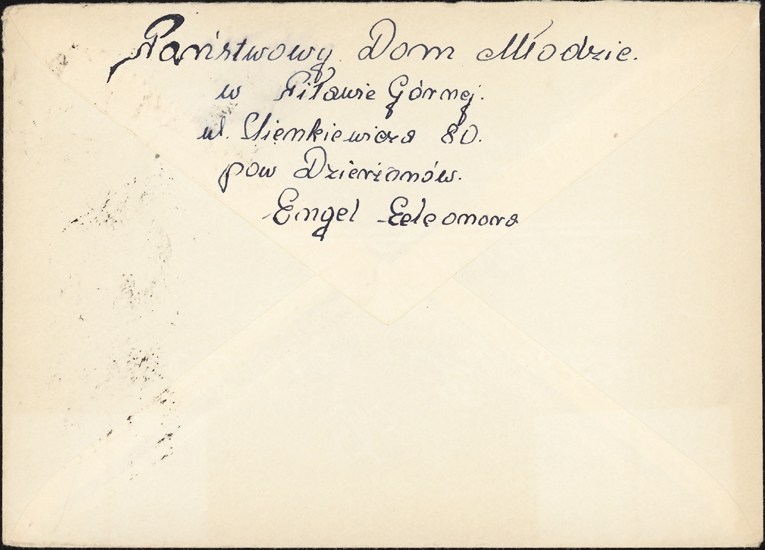 Państwowy Dom Młodzie.
w Piławie Górnej.
ul. Sienkiewicza 80.
pow Dzierżonów.
Engel Eeleonora